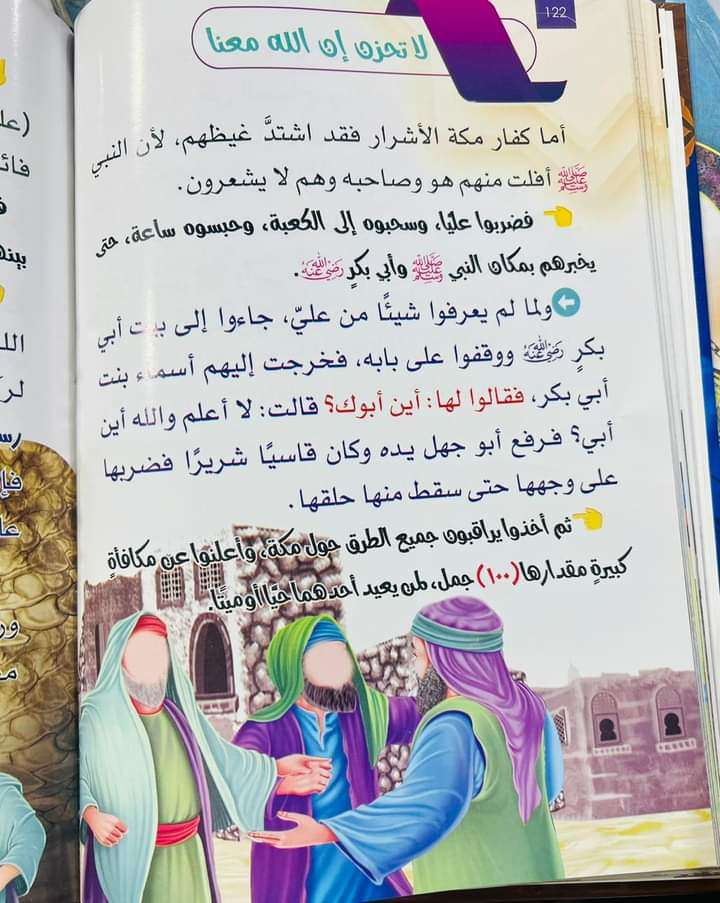 122
لا تحزن إن الله معنا
أما كفار مكة الأشرار فقد اشتدَّ غيظهم، لأن النبي
ﷺ أفلت منهم هو وصاحبه وهم لا يشعرون.
فضربوا عليًا، وسحبوه إلى الكعبة، وحبسوه ساعة، حتى
يخبرهم بمكان النبي ﷺ وأبي بكرٍ رضي الله عنه.
ولما لم يعرفوا شيئًا من عليّ، جاءوا إلى بيت أبي
بكرٍ رضي الله عنه ووقفوا على بابه، فخرجت إليهم أسماء بنت
أبي بكر، فقالوا لها: أين أبوك؟ قالت: لا أعلم والله أين
أبي؟ فرفع أبو جهل يده وكان قاسيًا شريرًا فضربها
على وجهها حتى سقط منها حلقها.
ثم أخذوا يراقبون جميع الطرق حول مكة، وأعلنوا عن مكافأةٍ
كبيرةٍ مقدارها (١٠٠) جمل، لمن يعيد أحدهما حيًّا أو ميتًا.